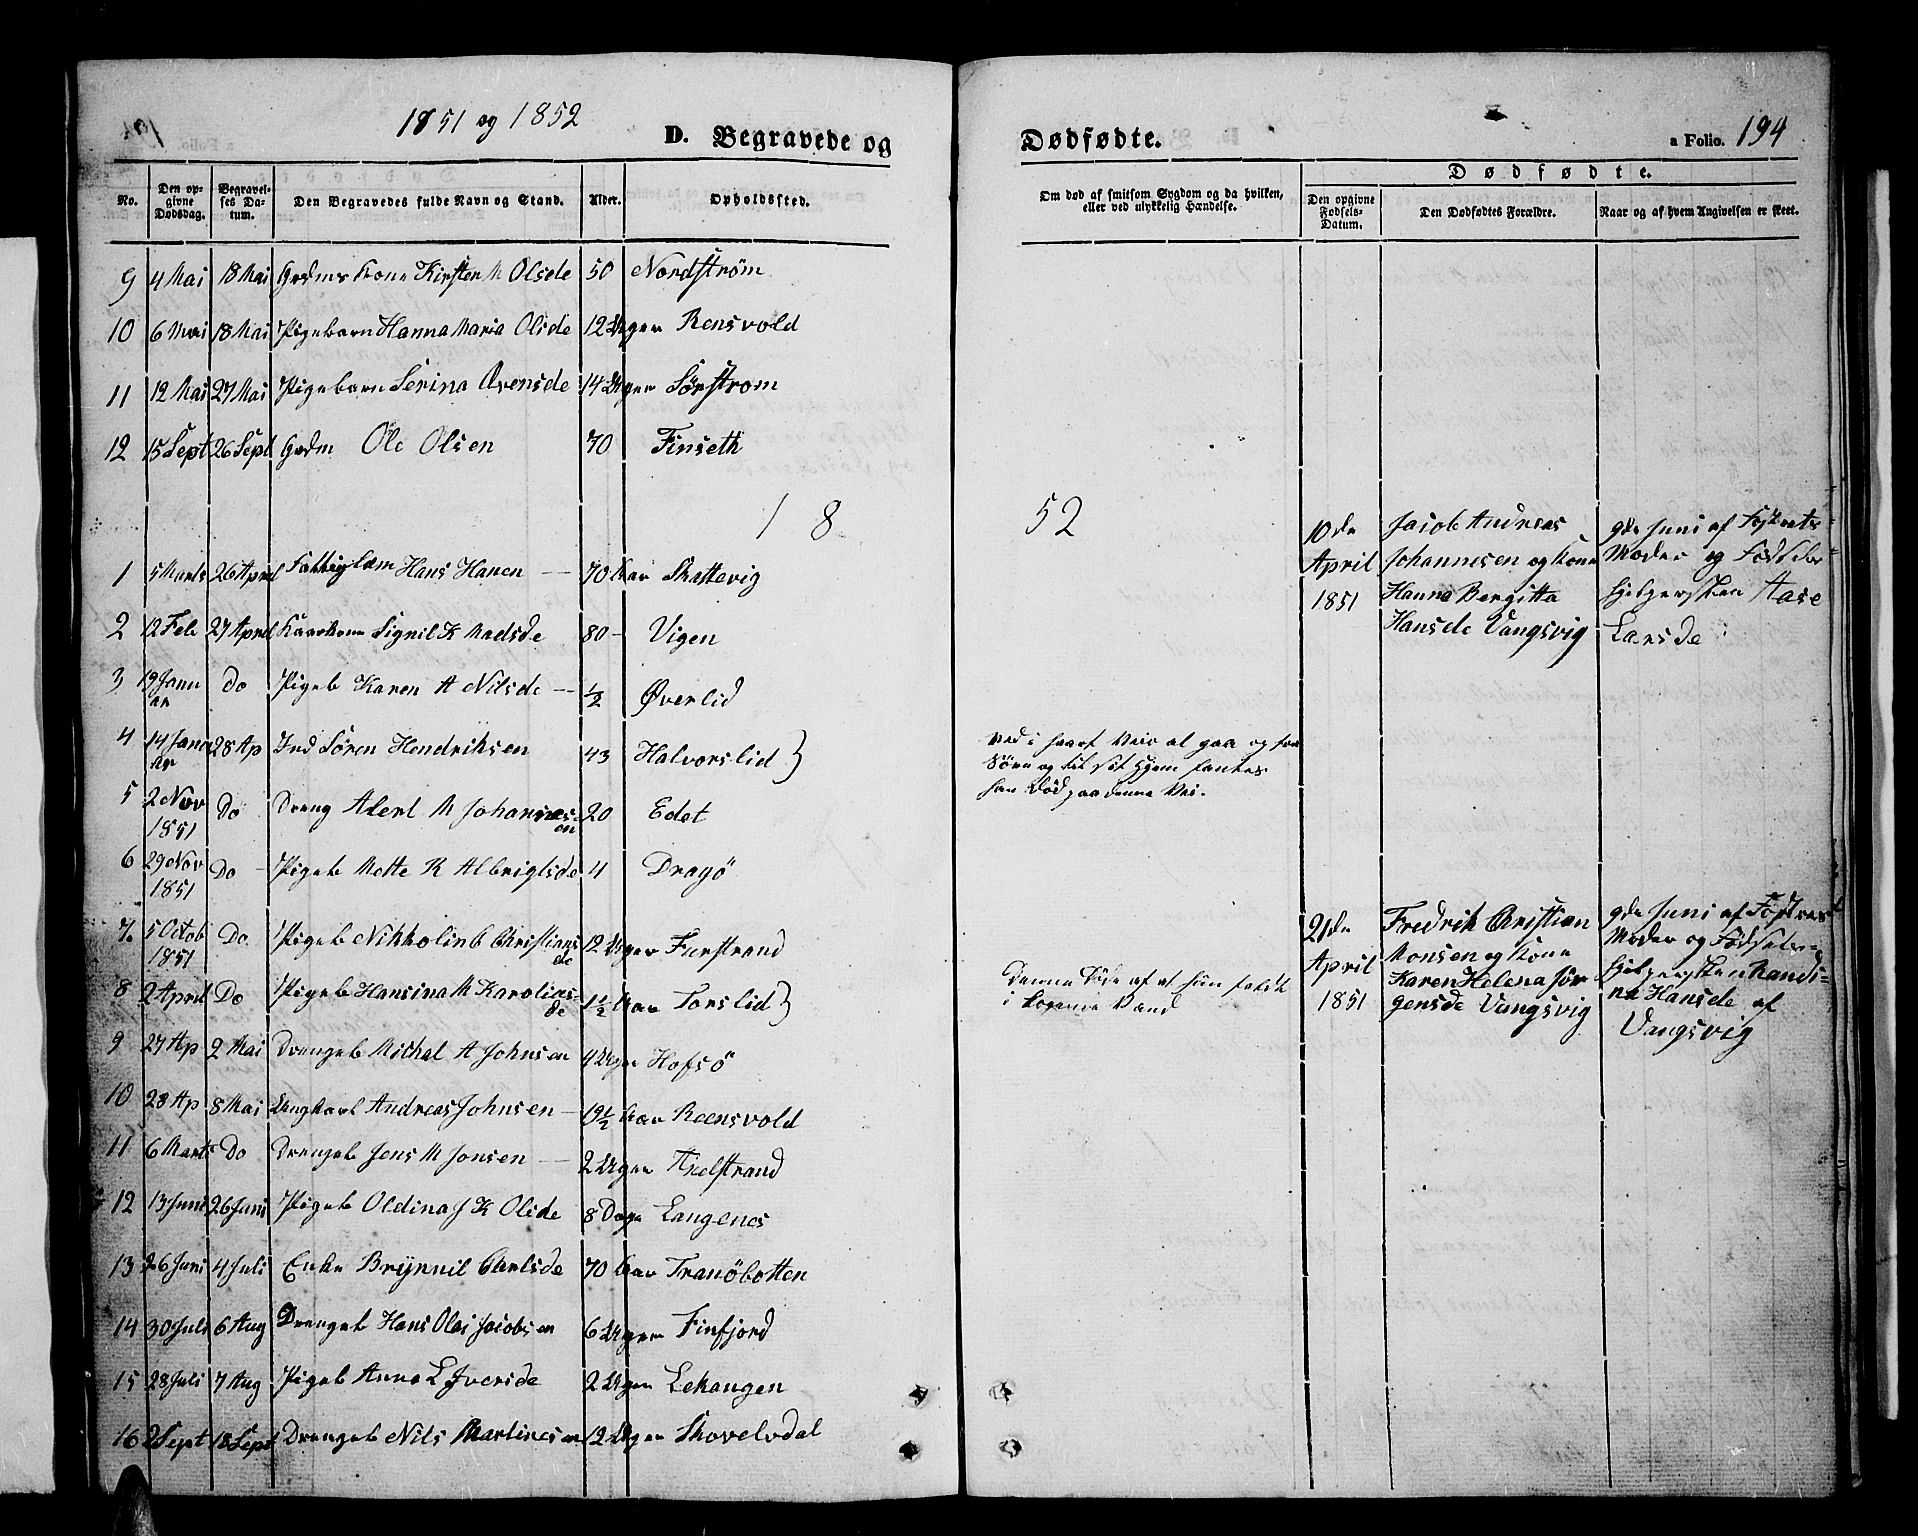 1851 og 1852
D. Begravede og
No.
Den opgivne Dødsdag.
Begravelses Datum.
Den Begravedes fulde Navn og Stand.
Alder.
Opholdsted.
9 4 Mai 18 Mai Grdms Kone Kirsten M Olsde 50 Nordstrøm
10 6 Mai 18 Mai Pigebarn Hanna Maria Olsde 12 Uger Rensvold
11 12 Mai 27 Mai Pigebarn Serina Arensde 14 Uger Sørstrom
12 15 Sept 26 Sept Grdm Ole Olsen 70 Finseth
18
1 5 Marts 26 April Fattiglem Hans Hanen 70 Aar Skattevig
2 12 Feb 27 April Kaarkone Signil K Madsde 80 Vigen
3 19 Januar Do Pigeb Karen A Nilsde ½ Øverlid
4 14 Januar 28 Ap Ind Søren Hendriksen 43 Halvorslid }
5 2 Nov 1851 Do Dreng Albert M Johannesen 20 Edet
6 29 Nov 1851 Do Pigeb Mette K Albrigtsde 4 Dragö
7. 5 Octob 1851 Do. Pigeb Nikkolin B Christiansde 12 Uger Furstrand
8 2 April Do Pigeb Hansina M Karoliusde 1½ Aar Torslid }
9 27 Ap 2 Mai Drengeb Michal A Johnsen 4 Uger Hofsö
10 28 Ap 8 Mai Ungkarl Andreas Johnsen 19½ Aar Reensvold
11 6 Marts Do Drengeb Jens M Jonsen 2 Uger Axelstrand
12 13 Juni 26 Juni Pigeb Oldina J K Olsde 8 Dage Langenes
13 26 Juni 4 Juli Enke Brynnil Carlsde 70 Aar Tranöbotten
14 30 Juli 6 Aug Drengeb Hans Olai Jacobsen 6 Uger Finfjord
15 28 Juli 7 Aug Pigeb Anna L Iversde 2 Uger Lekangen
16 2 Sept 18 Sept Drengeb Nils Martinesen 12 Uger Skovelvdal
Dødfødte.
a Folio. 194
Om død af smitsom Sygdom og da hvilken,
eller ved ulykkelig Hændelse.
Dødfødte.
Den opgivne Fødsels-Datum.
Den Dødfødtes Forældre.
Naar og af hvem Angivelsen er skeet.
52
10de
April
1851
Jacob Andreas
Johannesen og Kone
Hanna Bergitta
Hansde Vangsvig
9de Juni af Fostrets
Moder og Födsels
hjelpersken Aase
Larsde
Ved i haart Veir at gaa
og til sit Hjem fantes
han död paa denne Vei.
21de
April
1851
Fredrik Christian
Monsen og Kone
Karen Helena Jør
gensde Vangsvig
9de Juni af Fostrest
Moder og Fødsels
hjelpersken Randi-
na Hansde af
Vangsvig
Denne döde af at hun faldt
i kogende Vand